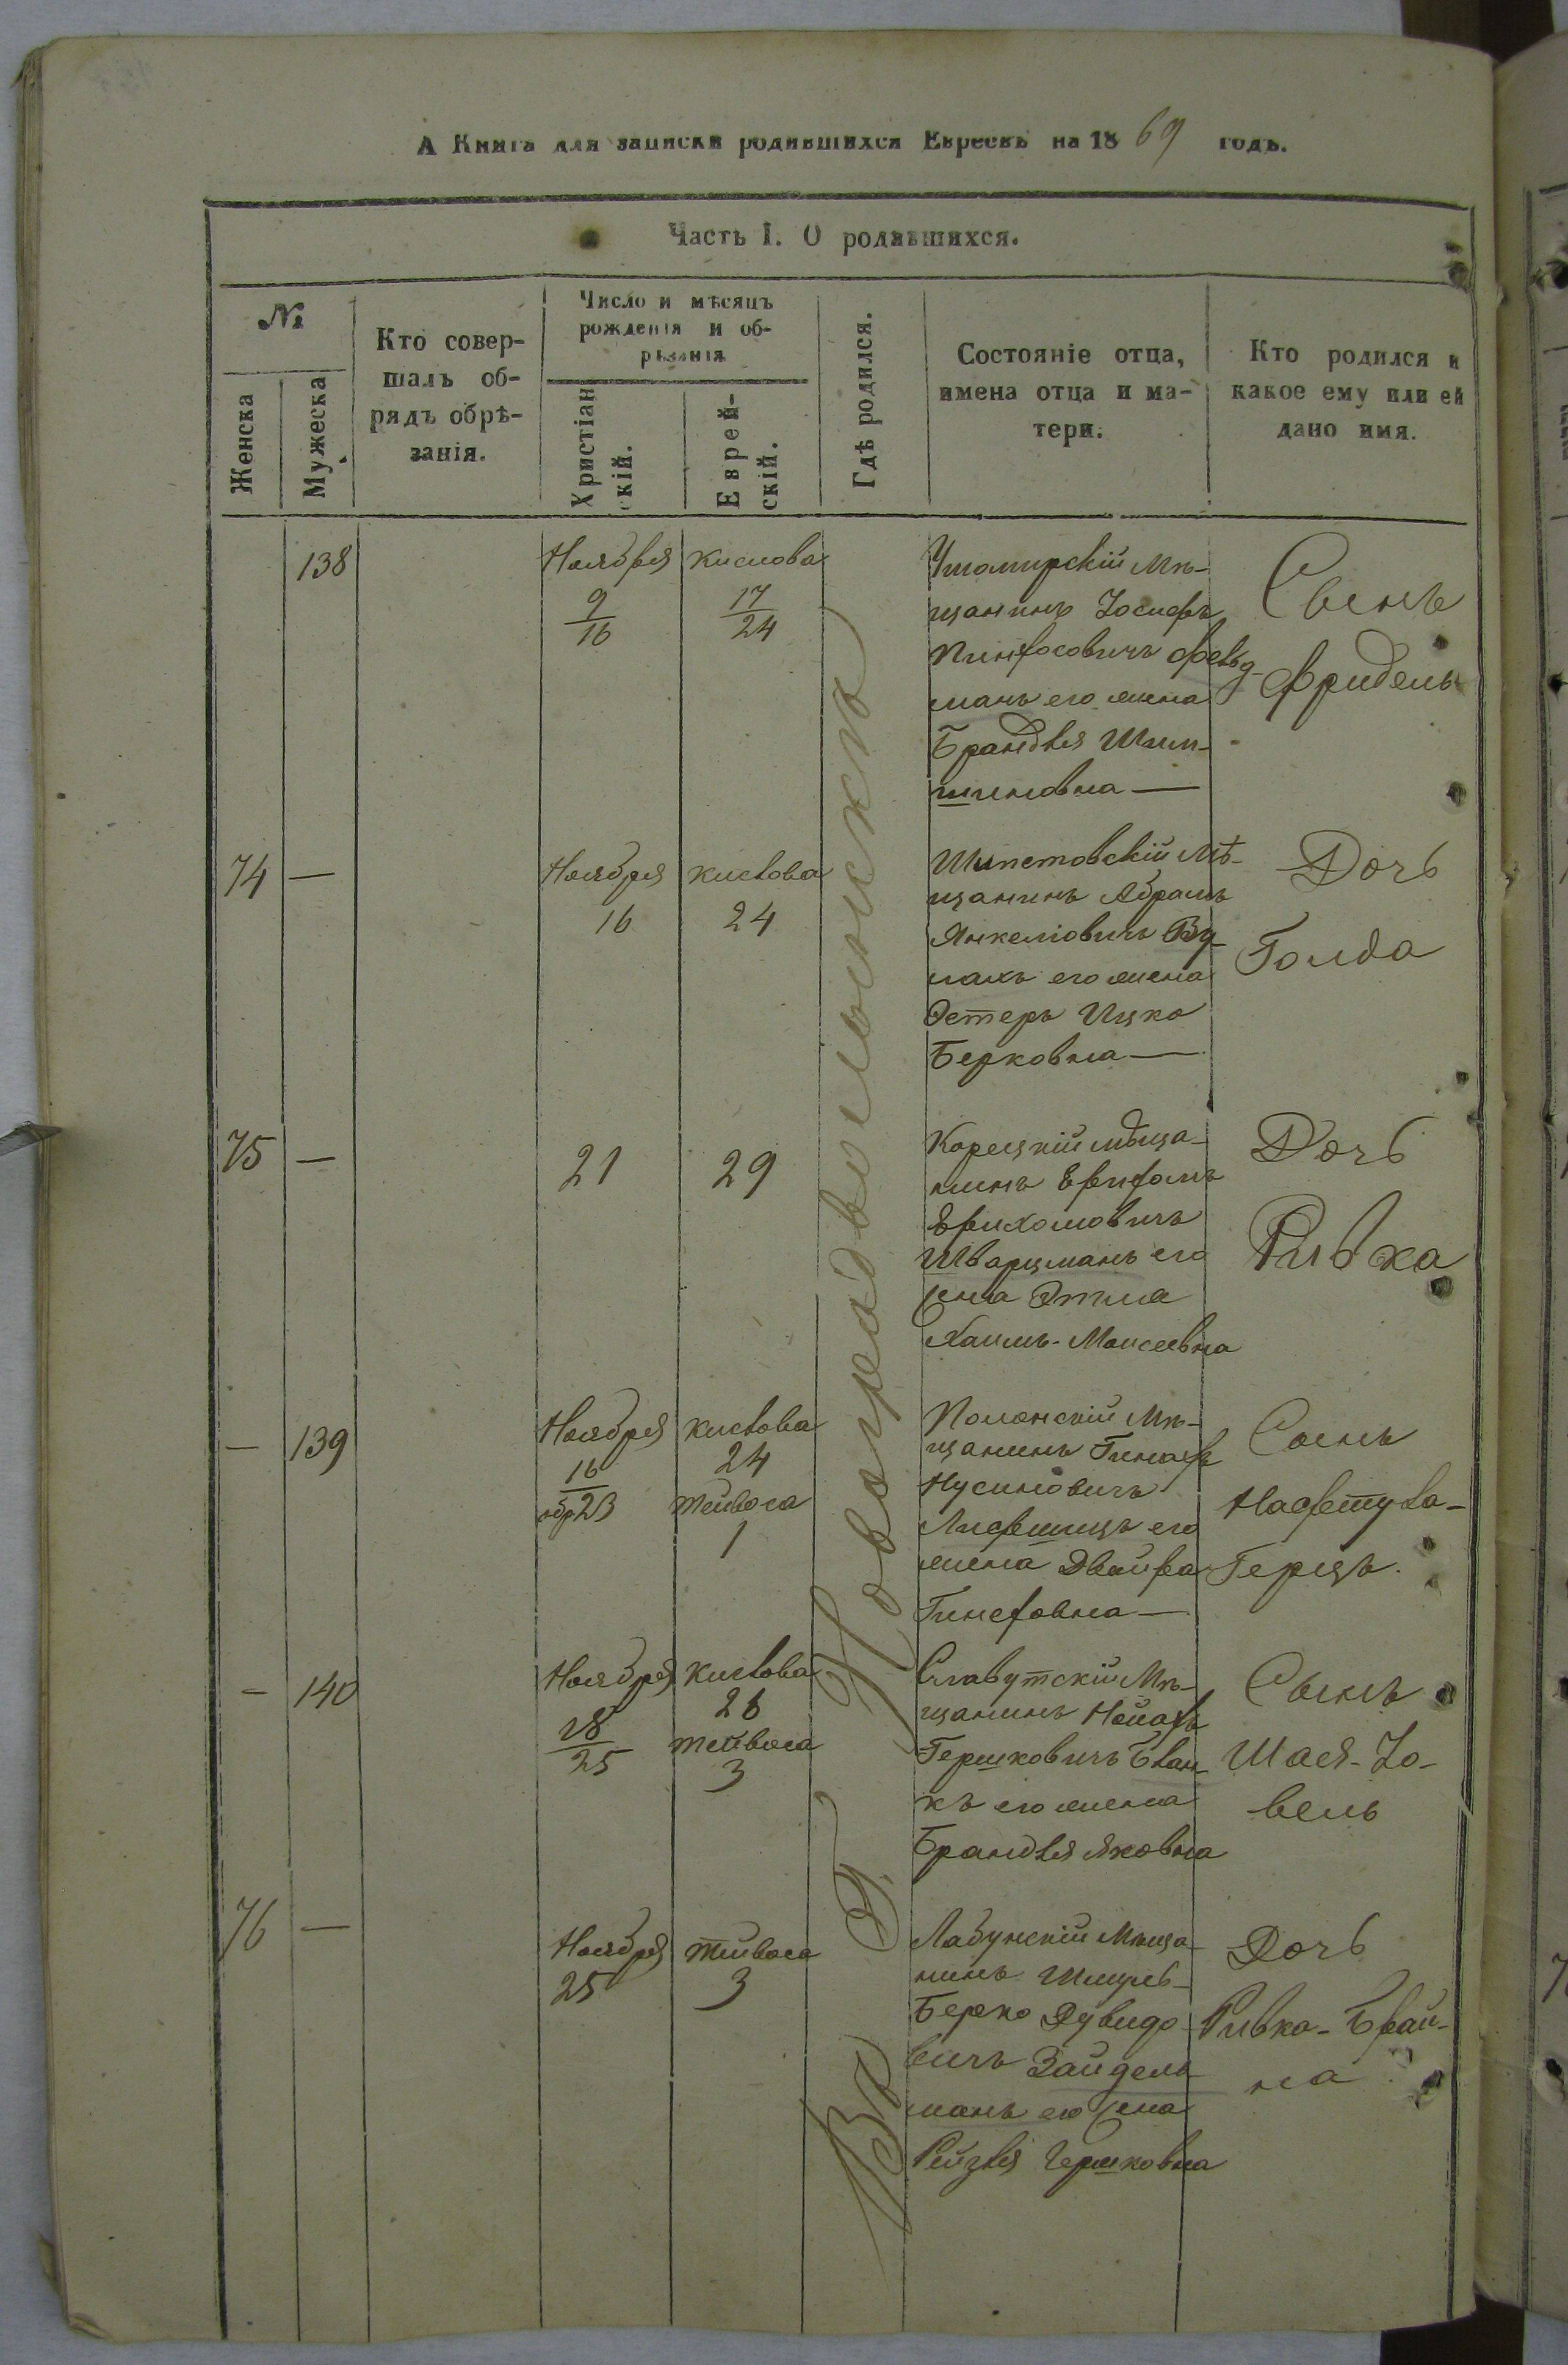 А Книга для записки родившихся Евреевъ на 1869 годъ.
Часть I. О родившихся.
№
Женска
Мужеска
Кто совер-
шалъ об-
рядъ обрѣ-
занія.
Число и мѣсяцъ
рожденія и об-
рѣзанія
Христіан
скій.
Еврей-
скій.
Гдѣ родился.
Состояніе отца,
имена отца и ма-
тери.
Кто родился и
какое ему или ей
дано имя.
138
Ноября
9
16
Кислова
17
24
Ушомирскій Мѣ-
щанинъ Іосифъ
Пинхосовичъ Фельд-
манъ его жена
Брандля Шим-
шиновна —
Сынъ
Фридель
74 —
Ноября
16
Кислова
24
Шипетовскій Мѣ-
щанинъ Абрамъ
Янкеліовичъ
его жена
Эстеръ Ицко
Берковна —
Дочь
Голда
75 —
21
29
Корецкій мѣща-
нинъ
Шварцманъ его
жена Этля
Хаимъ-Моисеевна
Дочь
Ривка
— 139
Ноября
16
обр 23
Кислова
24
Тейвоса
1
Полонскій Мѣ-
щанинъ
Нусиновичъ
Лифшицъ его
жена Двойра
Сынъ
Нафтула-
Герцъ.
— 140
Ноября
18
25
Кислова
26
Тейвоса
3
Славутскій Мѣ-
щанинъ Нойахъ
Гершковичъ Блан-
къ его жена
Брандля Яковна
Сынъ
Шая-Іо-
вель
76 —
Ноября
25
Тейвоса
3
Лабунскій Мѣща-
нинъ Шмуль-
Берко Дувидо-
вичъ Зайдель
манъ его жена
Рейзля Гершковна
Дочь
Ривка-Брай-
на
Въ Г. Новоградволынскѣ